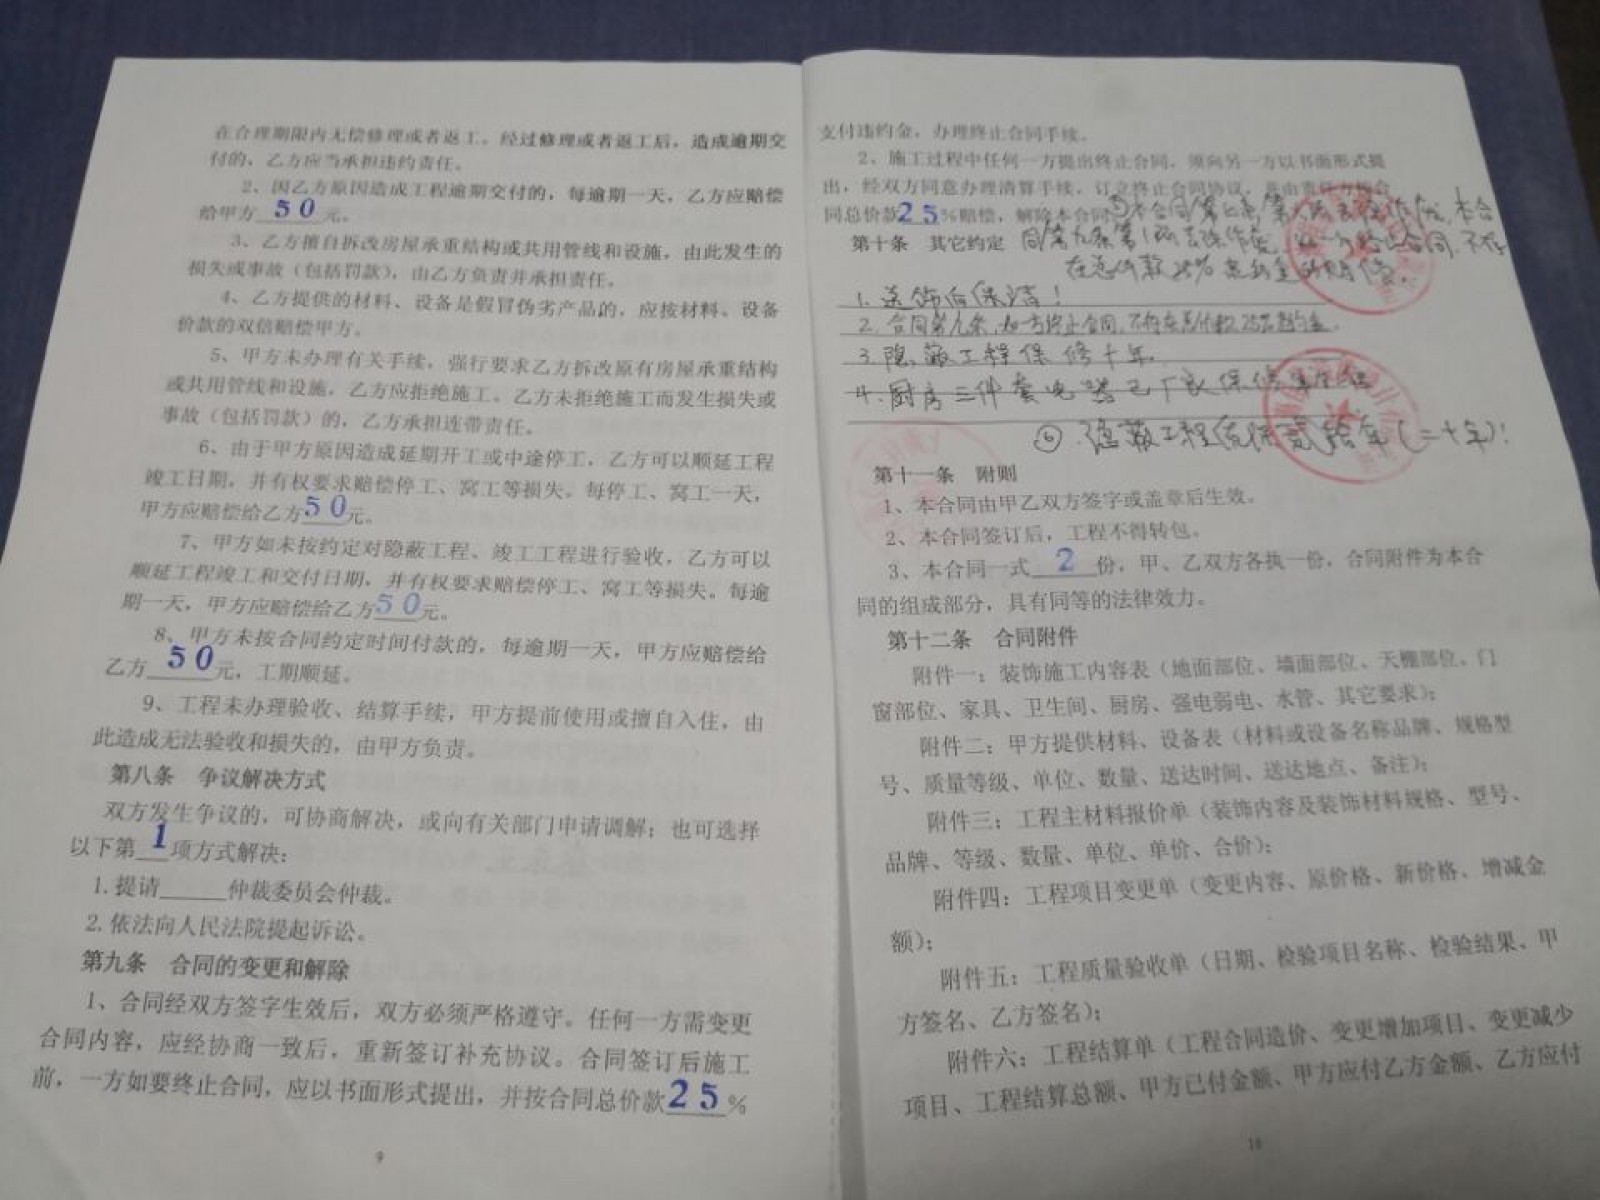 在合理期限内无偿修理或者返工。经过修理或者返工后，造成逾期交
付的，乙方应当承担违约责任。
2、因乙方原因造成工程逾期交付的，每逾期一天，乙方应赔偿
给甲方 50 元。
3、乙方擅自拆改房屋承重结构或共用管线和设施，由此发生的
损失或事故（包括罚款），由乙方负责并承担责任。
4、乙方提供的材料、设备是假冒伪劣产品的，应按材料、设备
价款的双倍赔偿甲方。
5、甲方未办理有关手续，强行要求乙方拆改原有房屋承重结构
或共用管线和设施，乙方应拒绝施工。乙方未拒绝施工而发生损失或
事故（包括罚款）的，乙方承担连带责任。
6、由于甲方原因造成延期开工或中途停工，乙方可以顺延工程
竣工日期，并有权要求赔偿停工、窝工等损失。每停工、窝工一天，
甲方应赔偿给乙方50元。
7、甲方如未按约定对隐蔽工程、竣工工程进行验收，乙方可以
顺延工程竣工和交付日期，并有权要求赔偿停工、窝工等损失。每逾
期一天，甲方应赔偿给乙方50元。
8、甲方未按合同约定时间付款的，每逾期一天，甲方应赔偿给
乙方 50 元，工期顺延。
9、工程未办理验收、结算手续，甲方提前使用或擅自入住，由
此造成无法验收和损失的，由甲方负责。
第八条 争议解决方式
双方发生争议的，可协商解决，或向有关部门申请调解；也可选择
以下第 1 项方式解决：
1.提请______仲裁委员会仲裁。
2.依法向人民法院提起诉讼。
第九条 合同的变更和解除
1、合同经双方签字生效后，双方必须严格遵守。任何一方需变更
合同内容，应经协商一致后，重新签订补充协议。合同签订后施工
前，一方如要终止合同，应以书面形式提出，并按合同总价款25%
9
支付违约金，办理终止合同手续。
2、施工过程中任何一方提出终止合同，须向另一方以书面形式提
出，经双方同意办理清算手续，订立终止合同协议，并由责任方按合
同总价款25%赔偿，解除本合同
第十条 其它约定
在总价款25%
1.送
2.合同第九条,如一方终止合同,不存在总价款25%违约金.
3.隐蔽工程保修十年.
4.厨房三件套电器
⑥.隐蔽工程质保贰拾年(二十年)!
第十一条 附则
1、本合同由甲乙双方签字或盖章后生效。
2、本合同签订后，工程不得转包。
3、本合同一式 2 份，甲、乙双方各执一份，合同附件为本合
同的组成部分，具有同等的法律效力。
第十二条 合同附件
附件一：装饰施工内容表（地面部位、墙面部位、天棚部位、门
窗部位、家具、卫生间、厨房、强电弱电、水管、其它要求）；
附件二：甲方提供材料、设备表（材料或设备名称品牌、规格型
号、质量等级、单位、数量、送达时间、送达地点、备注）；
附件三：工程主材料报价单（装饰内容及装饰材料规格、型号、
品牌、等级、数量、单位、单价、合价）；
附件四：工程项目变更单（变更内容、原价格、新价格、增减金
额）；
附件五：工程质量验收单（日期、检验项目名称、检验结果、甲
方签名、乙方签名）；
附件六：工程结算单（工程合同造价、变更增加项目、变更减少
项目、工程结算总额、甲方已付金额、甲方应付乙方金额、乙方应付
10